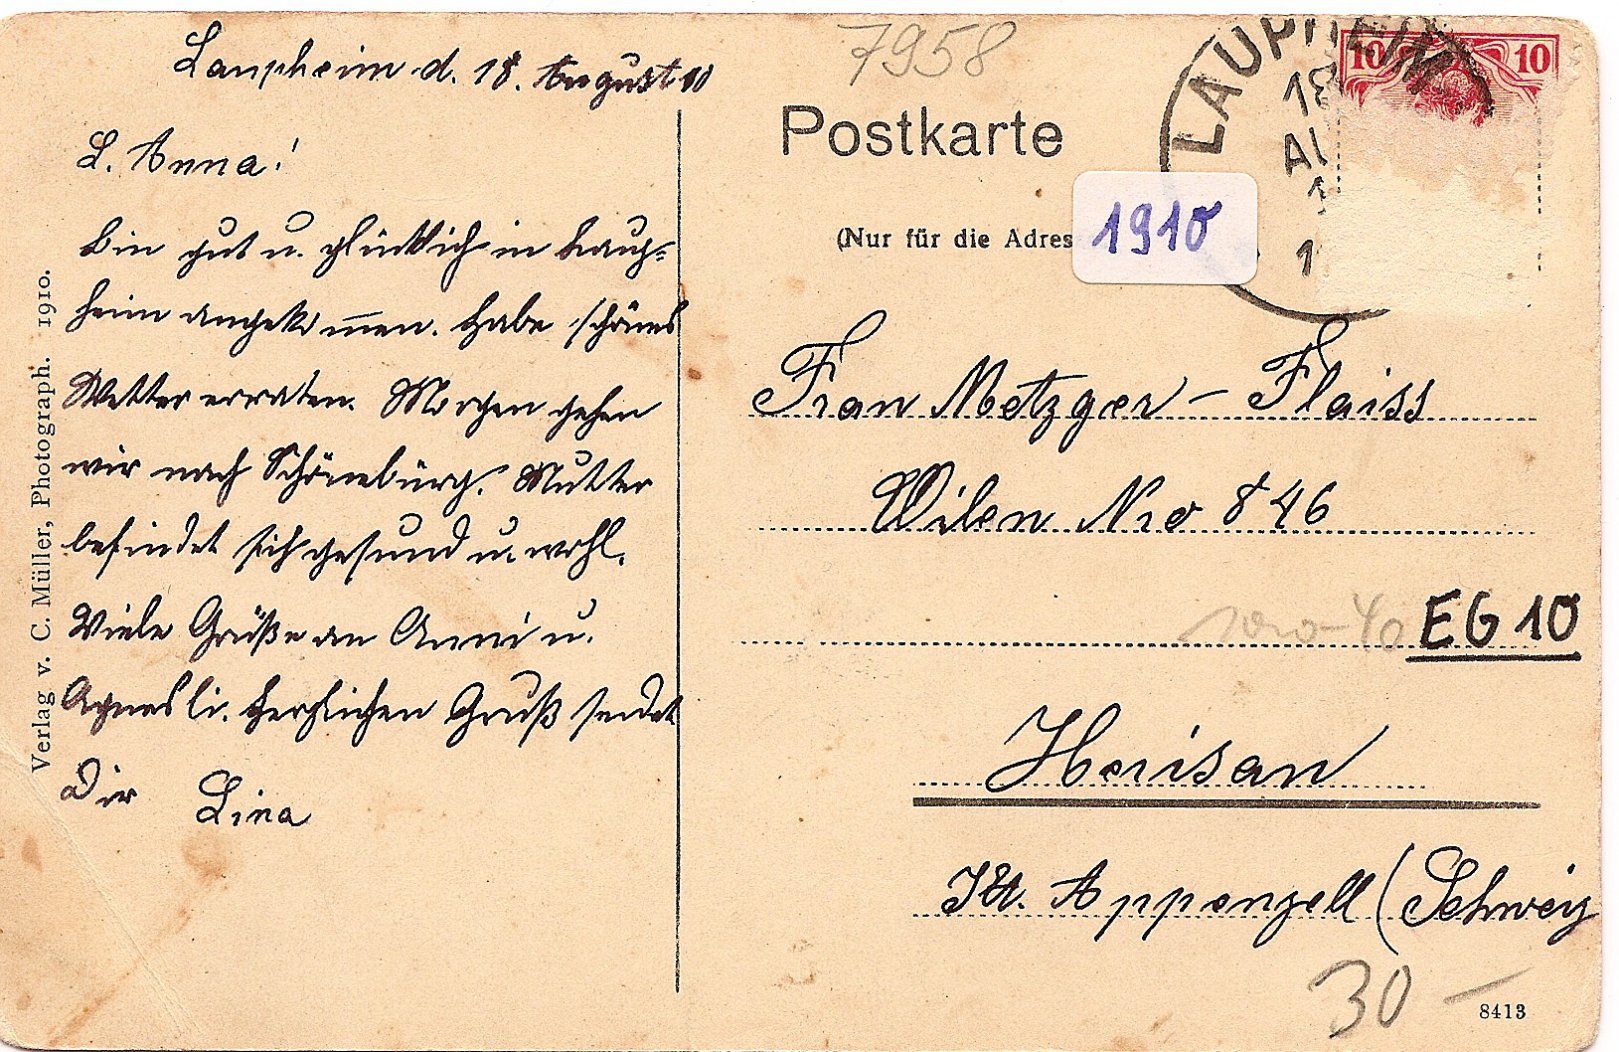 Laupheim d. 18. August 10
L. Anna!
Bin gut u. glücklich in Laup=
heim angekommen. Habe schönes
Wetter erraten. Morgen gehen
wir nach Schönebürg. Mutter
befindet sich gesund u. wohl.
Viele Grüße an Anni u.
Agnesli. Herzlichen Gruß sendet
Dir Lina
Verlag v. C. Müller, Photograph. 1910.
7958
Postkarte
(Nur für die Adres
1910
LAUPHEIM
18
AU
1
10 10
Frau Metzger-Flaiss
Wilen Nro 846
EG 10
Herisau
Kt. Appenzell (Schweiz
30 –
8413